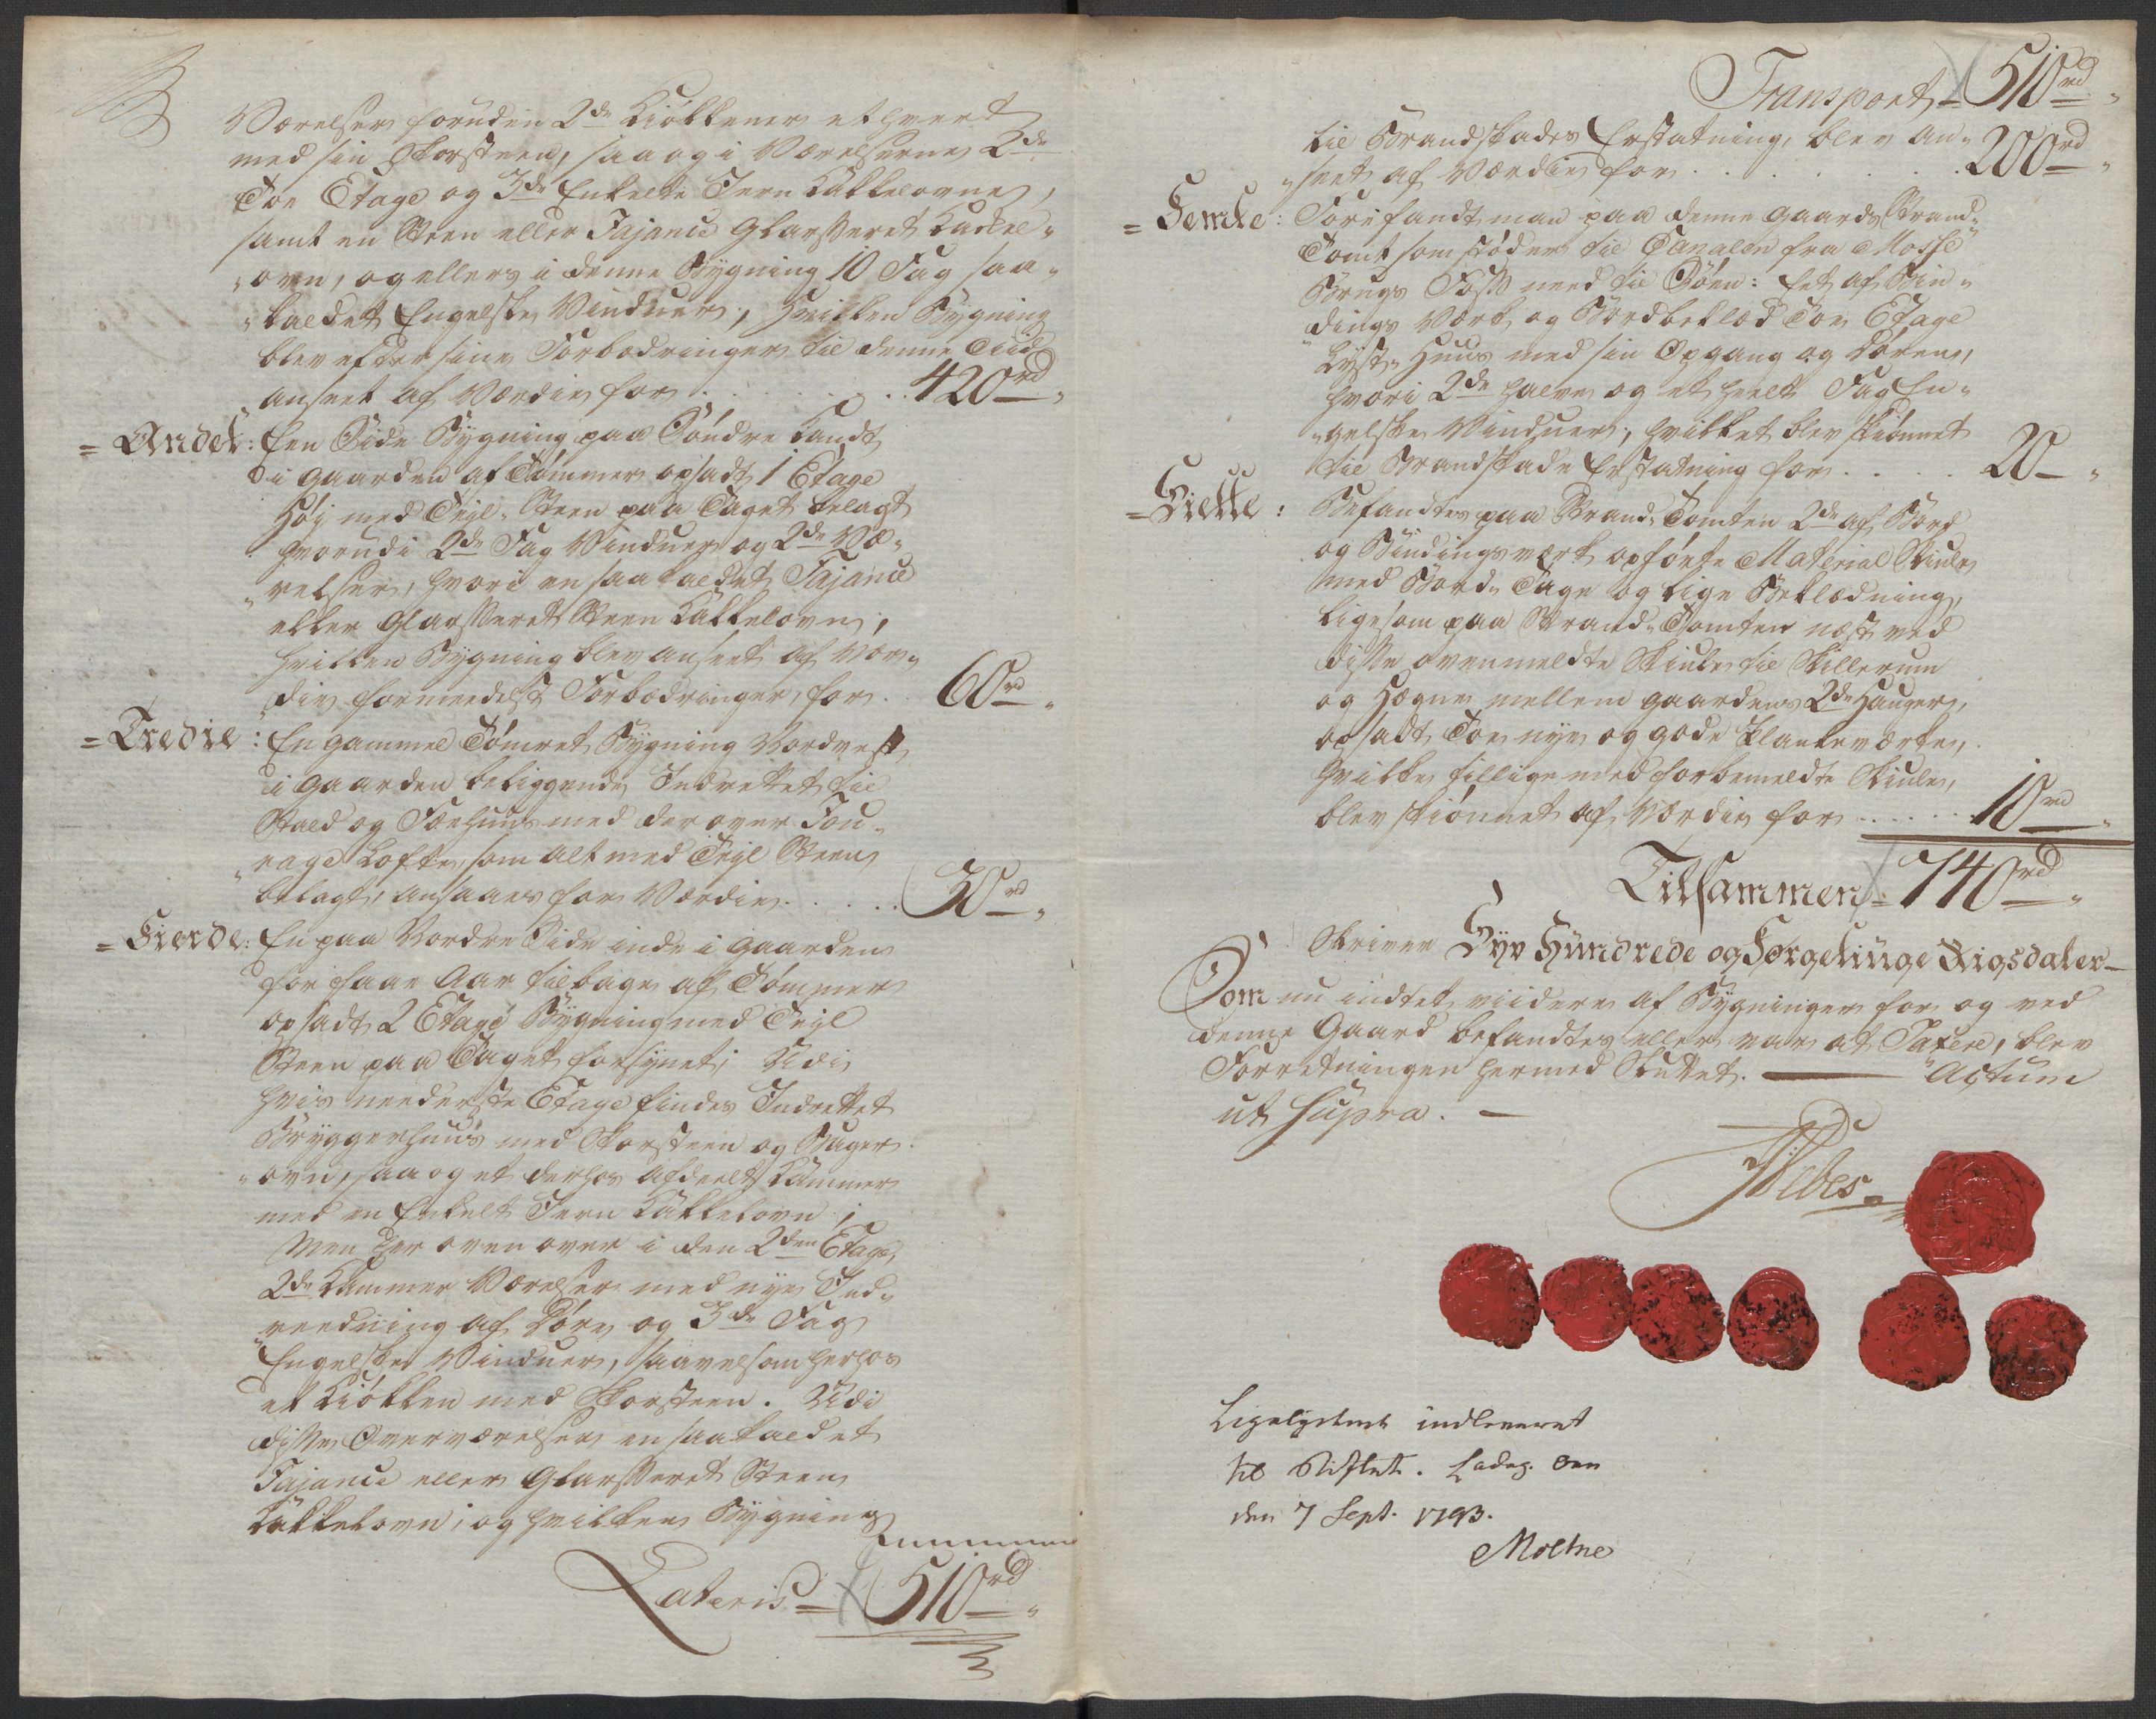 Værelser foruden 2de Kiökkener et hvert
med sin Skorsteen, saa og i Værelserne 2de
Toe Etage og 3de Enkelte Jern Kakkelovne,
samt en Steen eller Fajance Glarsseret Kackel-
ovn, og ellers i denne Bygning 10 Fag saa-
kaldet Engelske Vinduer, hvilken Bygning
blev efter sine Forbedringer til denne Tiid
anseet af Værdie for . . . . . 420rd
= Andet: Een Side Bygning paa Söndre Kandt
i Gaarden af Tömmer opsadt 1 Etage
Höj med Tejl-Steen paa Taget belagt
hvorudi 2de Fag Vinduer og 2de Væ-
relser, hvori en saakaldet Fajance
eller Glarsseret Steen Kakkelovn,
hvilken Bygning blev anseet af Vær-
die formedelst Forbedringer, for . 60rd
= Tredie: En gammel Tömret Bygning Nordvest
i Gaarden beliggende Indrettet til
Stald og Fæehuus med der over Fou-
rage Lofte, som alt med Tejl Steen
belagt, ansaaes for Værdie . . . . 30rd
= Fierde: En paa Nordre Side inde i Gaarden
for faae Aar tilbage af Tömmer
opsadt 2 Etage Bygning med Tejl
Steen paa Taget forsynet; Udi
hvis neederste Etage findes Indrettet
Bryggerhuus med Skorsteen og Bager-
ovn, saa og et derhos afdeelt Kammer
med en Enkelt Jern Kakkelovn;
Men her oven over i den 2den Etage,
2de Kammer Værelser med nye Ind-
reedning af Döre og 3de Fag
Engelske Vinduer, saavelsom herhos
et Kiökken med Skorsteen. Udi
disse Overværelser en saakaldet
Fajance eller Glarsseret Steen
Kakkelovn; og hvilken Bygning
Lateris = 510rd
Transport = 510rd
til Brandskades Erstatning, blev an-
seet af Værdie for . . . . . 200rd
= Femte: Foruefandt man paa denne Gaards Strand-
Tomt som stöder til Canalen fra Mosse
Brugs Foss need til Söen: Eet af Bin-
dings Værk og Bordbeklæd Toe Etage
Lyst-Huus med sin Opgang og Dörene,
hvori 2de halve og et heelt Fag En-
gelske Vinduer, hvilket blev skiönnet
til Brandskade Erstatning for . . . . 20
= Siette: Befandtes paa Strand-Tomten 2de af Bord
og Bindingsværk opförte Material Skiule
med Bord-Tage og lige Beklædning,
Ligesom paa Strand-Tomten næst ved
disse ovenmeldte Skiule til Skillerum
og Hægne mellem Gaardens 2de Hauger,
opsadt Toe nye og gode Plankeværker,
hvilke tillige med forbemeldte Skiule,
blev skiönnet af Værdie for . . . . 10rd
Tilsammen = 740rd
Skriver Syv Hundrede og Förgetiuge Rigsdaler
Som nu indtet viidere af Bygninger for og ved
denne Gaard befandtes eller var at Taxere, blev
Forretningen hermed Sluttet. — Actum
ut supra. —
Ligelydende indleveret
til Stiftet. Ladeg. Öen
den 7 Sept. 1793.
Moltke